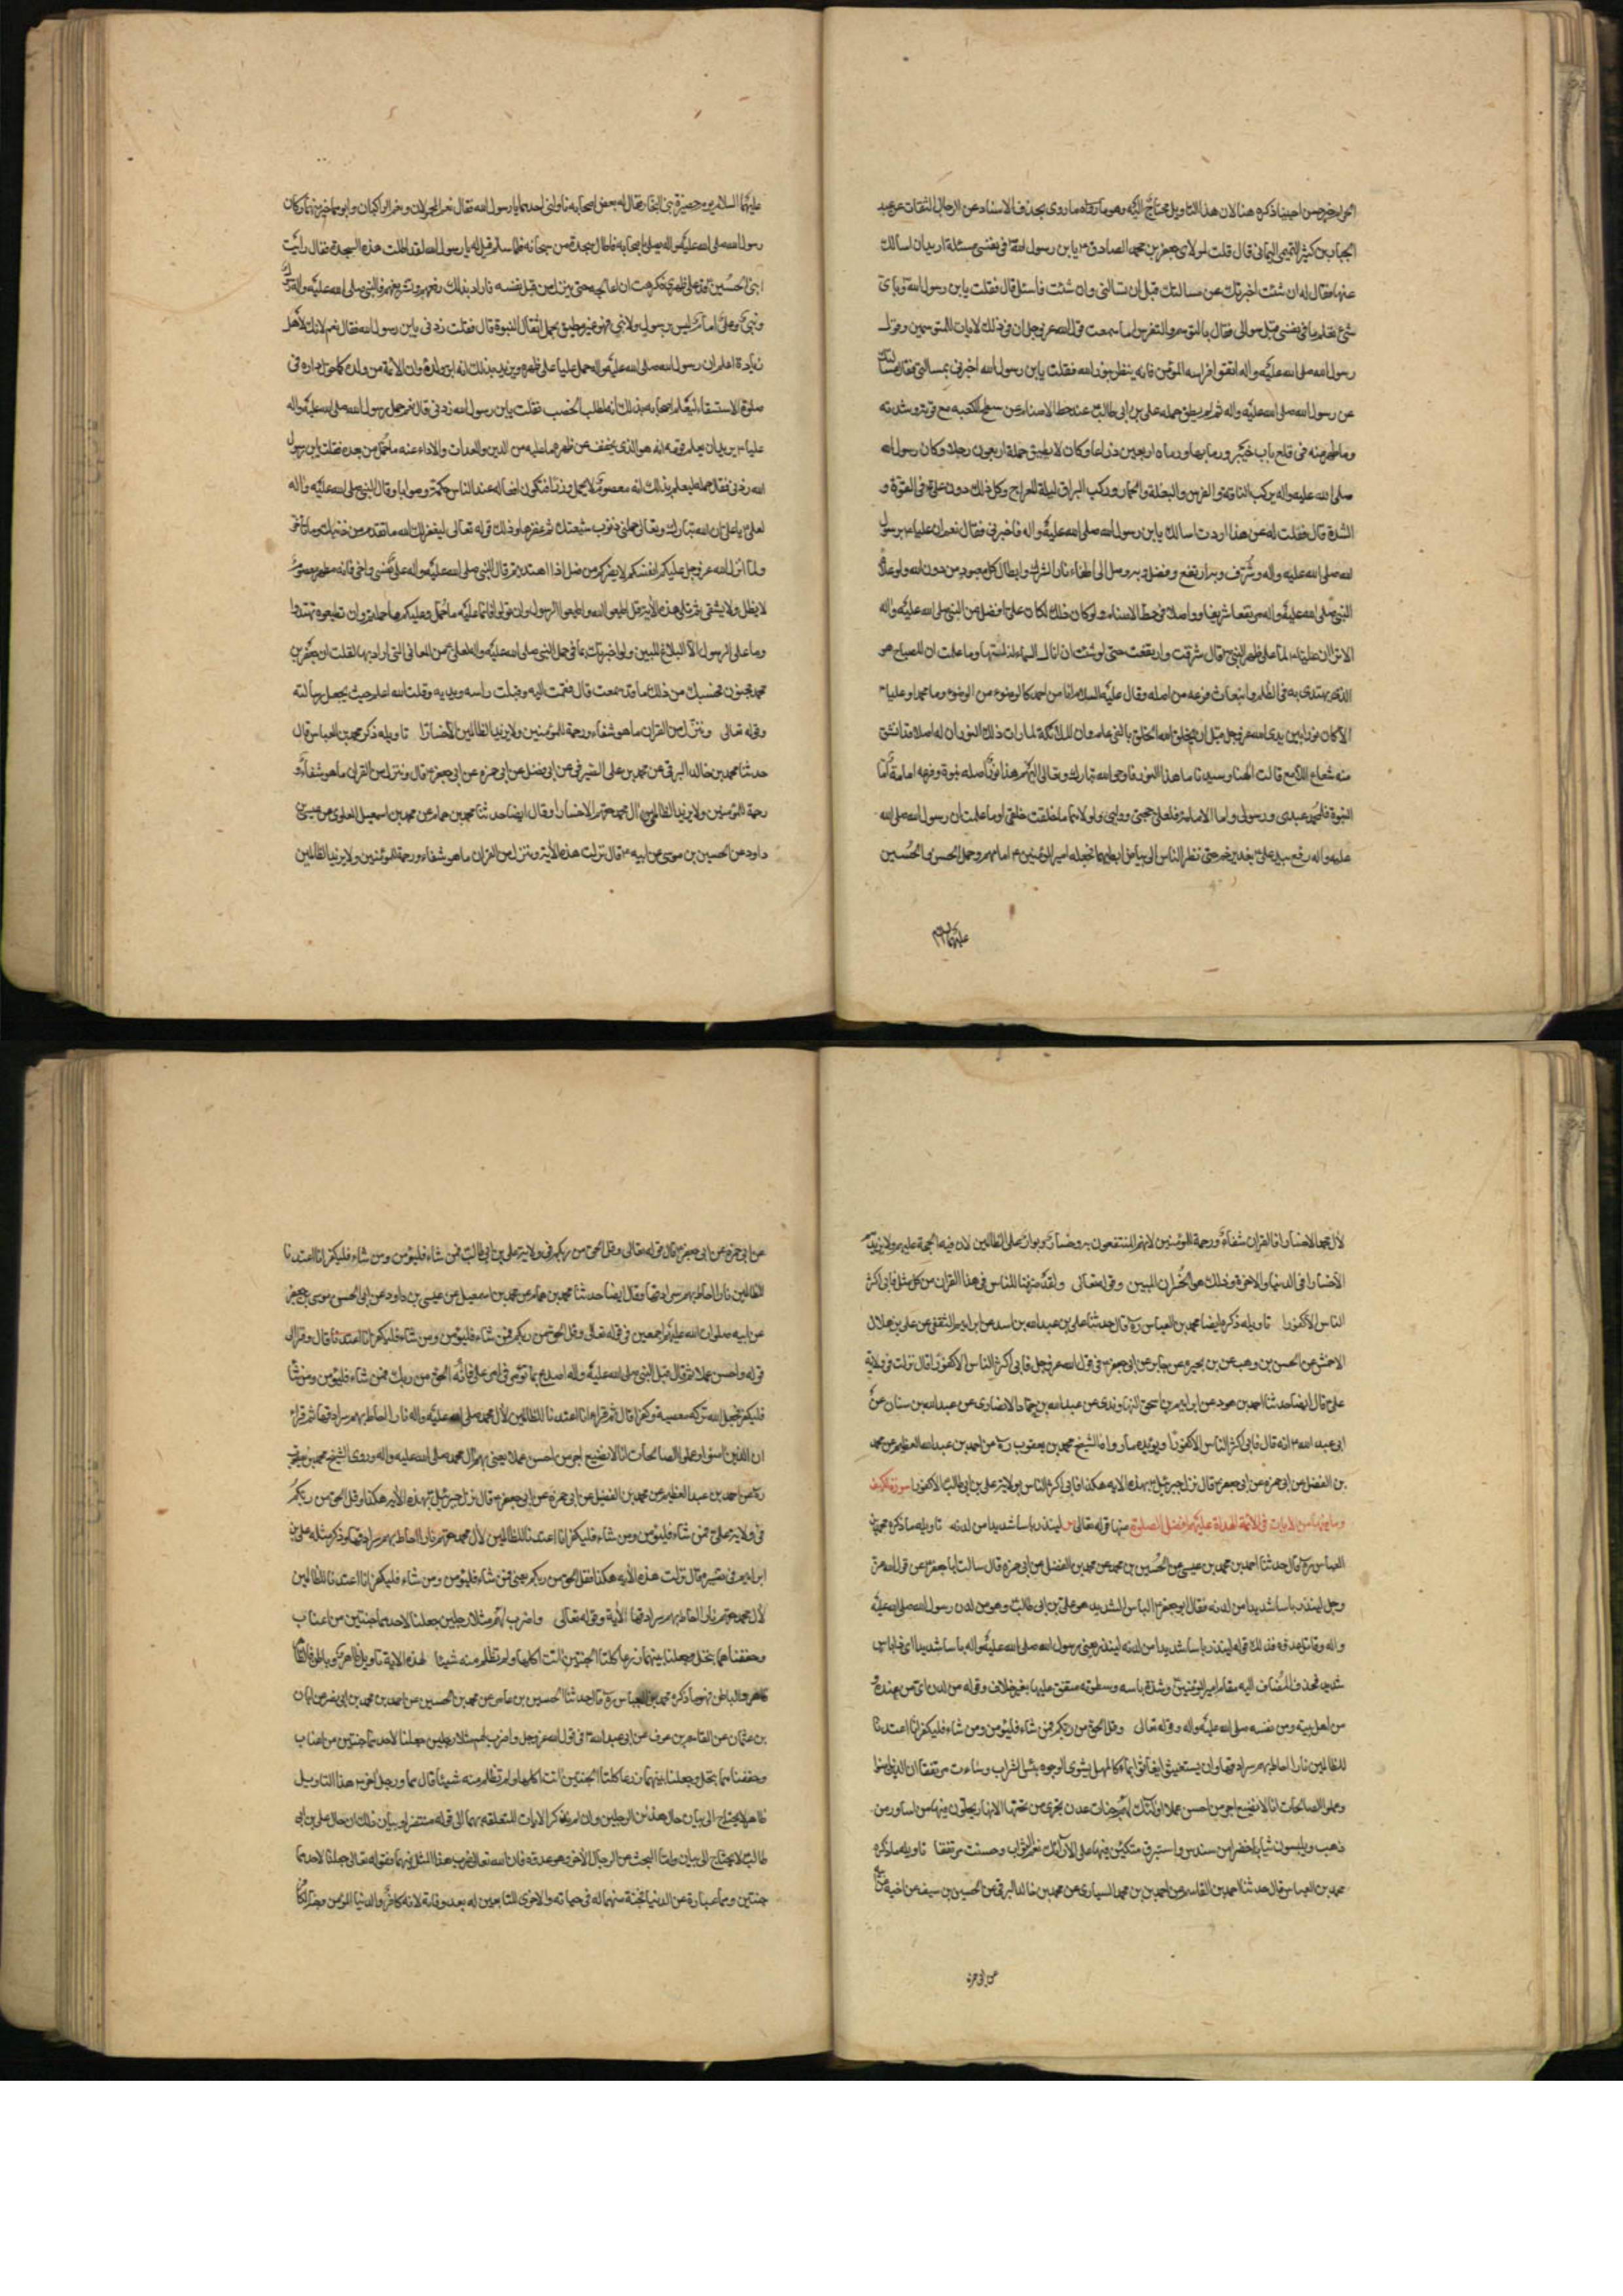 احببنا ذكره هنا لان هذا التاويل محتاج اليه وهو ما روى بحذف الاسناد عن الرجال الثقات عن عبد
الجبار بن كثير التميمى اليمانى قال قلت لمولاى جعفر بن محمد الصادق ع يابن رسول الله فى نفسى مسئلة اريد ان اسالك
عنها فقال له ان شئت اخبرتك عن مسالتك قبل ان تسالنى وان شئت فاسئل قال فقلت يابن رسول الله وباى
شىء تعلم ما فى نفسى قبل سوالى فقال بالتوسم والتفرس اما سمعت قول الله عز وجل ان فى ذلك لايات للمتوسمين وقول
رسول الله صلى الله عليه واله اتقوا فراسه المؤمن فانه ينظر بنور الله فقلت يابن رسول الله اخبرنى بمسالتى فقال مسالتك
عن رسول الله صلى الله عليه واله لم لم يطق حمله على بن ابى طالب عند حط الاصنام عن سطح الكعبه مع قوته وشدته
وما ظهر منه فى قلع باب خيبر ورما بها ورماه اربعين ذراعا وكان لا يطيق حملة اربعون رجلا وكان رسول الله
صلى الله عليه واله يركب الناقة والفرس والبغلة والحمار وركب البراق ليلة المعراج وكل ذلك دون على فى القوة و
الشدة قال فقلت له عن هذا اردت اسالك يابن رسول الله صلى الله عليه واله فاخبرنى فقال نعم ان عليا ع برسول
الله صلى الله عليه واله شرف وبه ارتفع وفضل وبه وصل الى اطفاء نار الشرك وابطال كل معبود من دون الله ولو علاه
النبى صلى الله عليه واله مرتفعا شريفا وواصلا فى حط الاصنام ولو كان ذلك لكان على افضل من النبى صلى الله عليه واله
الا ترى ان عليا لما علا ظهر النبى قال شرفت وارتفعت حتى لو شئت ان انال السماء لنلتها وما علمت ان المصباح هو
الذى يهتدى به فى الظلم وانبعاث فرعه من اصله وقال عليه السلم انا من احمد كالضوء من الضوء وما محمد وعليا ع
الا كان نورا بين يدى الله عز وجل قبل ان يخلق الله الخلق بالفى عام وان الملائكة لما رات ذلك النور ان له اصلا قد انشق
منه شعاع لامع قالت الهنا وسيدنا ما هذا النور فاوحى الله تبارك وتعالى اليهم هذا نور اصله نبوة وفرعه امامة اما
النبوة فلمحمد عبدى ورسولى واما الامامة فلعلى حجتى ووليى ولولاهما ما خلقت خلقى اوما علمت ان رسول الله صلى الله
عليه واله رفع بيد على بغدير خم حتى نظر الناس الى بياض ابطيهما فجعله امير المؤمنين ع امامهم وحمل الحسن والحسين
عليهما السلام
عليهما السلام يوم حضيرة بنى النجار فقال له بعض اصحابه ناولنى احدهما يا رسول الله فقال نعم المحمولان ونعم الراكبان وابوهما خير منهما وكان
رسول الله صلى الله عليه واله يصلى باصحابه فاطال سجدة من سجداته فلما سلم قيل له يا رسول الله لقد اطلت هذه السجدة فقال رايت
ابنى الحسين قد علا ظهرى فكرهت ان اعالجه حتى ينزل من قبل نفسه فاراد بذلك رفعهم وتشريفهم فالنبى صلى الله عليه واله
ونبى وعلى امام ليس برسول ولا نبى فهو غير مطيق بحمل اثقال النبوة قال فقلت زدنى يابن رسول الله فقال نعم انك لاهل
زيادة اعلم ان رسول الله صلى الله عليه واله حمل عليا على ظهره يريد بذلك انه ابو ولده وان الائمة من ولده كما حول رداءه فى
صلوة الاستسقاء ليعلم اصحابه بذلك انه لطلب الخصب فقلت يابن رسول الله زدنى قال نعم حمل رسول الله صلى الله عليه واله
عليا ع يريد ان يعلم قومه انه هو الذى يخفف عن ظهره ما عليه من الدين والعدات والاداء عنه ما حمل من بعده فقلت يابن رسول
الله زدنى فقال حمله ليعلم بذلك انه معصوم لا يحمل وزرا فتكون افعاله عند الناس حكمة وصوابا وقال النبى صلى الله عليه واله
لعلى يا على ان الله تبارك وتعالى حملنى ذنوب شيعتك ثم غفرها وذلك قوله تعالى ليغفر لك الله ما تقدم من ذنبك وما تاخر
ولما انزل الله عز وجل عليكم انفسكم لا يضركم من ضل اذا اهتديتم قال النبى صلى الله عليه واله على نفسى واخى فانه مطهر معصوم
لا يضل ولا يشقى ثم تلى هذه الاية قل اطيعوا الله واطيعوا الرسول وان تولوا فانما عليه ما حمل وعليكم ما حملتم وان تطيعوه تهتدوا
وما على الرسول الا البلاغ المبين ولو اخبرتك بما فى حمل النبى صلى الله عليه واله لعلى من المعانى التى اراد بها لقلت ان جعفر بن
محمد مجنون فحسبك من ذلك ما قد سمعت قال فقمت اليه وقبلت راسه ويديه وقلت الله اعلم حيث يجعل رسالته
وقوله تعالى وننزل من القران ما هو شفاء ورحمة للمؤمنين ولا يزيد الظالمين الا خسارا تاويله ذكره محمد بن العباس قال
حدثنا محمد بن خالد البرقى عن محمد بن على الصيرفى عن ابن فضيل عن ابى حمزه عن ابى جعفر ع قال وننزل من القران ما هو شفاء و
رحمة للمؤمنين ولا يزيد الظالمين ال محمد حقهم الا خسارا وقال ايضا حدثنا محمد بن همام عن محمد بن اسمعيل العلوى عن عيسى بن
داود عن الحسين بن موسى عن ابيه ع قال نزلت هذه الاية وننزل من القران ما هو شفاء ورحمة للمؤمنين ولا يزيد الظالمين
لال محمد الا خسارا فالقران شفاء ورحمة للمؤمنين لانهم المنتفعون به وخسار وبوار على الظالمين لان فيه الحجة عليهم ولا يزيدهم
الا خسارا فى الدنيا والاخرة وذلك هو الخسران المبين وقوله تعالى ولقد صرفنا للناس فى هذا القران من كل مثل فابى اكثر
الناس الا كفورا تاويله ذكره ايضا محمد بن العباس ره قال حدثنا على بن عبد الله بن اسد عن ابراهيم الثقفى عن على بن هلال
الاحمسى عن الحسن بن وهب عن بن بحيره عن جابر عن ابى جعفر ع فى قول الله عز وجل فابى اكثر الناس الا كفورا قال نزلت فى ولاية
على قال ايضا حدثنا احمد بن هوده عن ابراهيم بن اسحق النهاوندى عن عبد الله بن حماد الانصارى عن عبد الله بن سنان عن
ابى عبد الله ع انه قال فابى اكثر الناس الا كفورا ويؤيده ما رواه الشيخ محمد بن يعقوب ره عن احمد بن عبد العظيم عن محمد
بن الفضل عن ابى حمزه عن ابى جعفر ع قال نزل جبرئيل بهذه الايه هكذا فابى اكثر الناس بولاية على بن ابى طالب الا كفورا سورة الكهف
وما فيها من الايات فى الائمة الهداة عليهم افضل الصلوة منها قوله تعالى لينذر باسا شديدا من لدنه تاويله ما ذكره محمد بن
العباس ره قال حدثنا احمد بن محمد بن عيسى عن الحسين بن محمد عن محمد بن الفضل عن ابى حمزه قال سالت ابا جعفر ع عن قول الله عز
وجل لينذر باسا شديدا من لدنه فقال ابو جعفر ع الباس الشديد هو على بن ابى طالب وهو من لدن رسول الله صلى الله عليه
واله وقاتل عدوه فذلك قوله لينذر باسا شديدا من لدنه لينذر يعنى رسول الله صلى الله عليه واله باسا شديدا اى ذا باس
شديد فحذف المضاف اليه مقام امير المؤمنين وشدة باسه وسطوته متفق عليها بغير خلاف وقوله من لدن اى من عنده
من اهل بيته ومن نفسه صلى الله عليه واله وقوله تعالى وقل الحق من ربكم فمن شاء فليؤمن ومن شاء فليكفر انا اعتدنا
للظالمين نارا احاط بهم سرادقها وان يستغيثوا يغاثوا بماء كالمهل يشوى الوجوه بئس الشراب وساءت مرتفقا ان الذين امنوا
وعملوا الصالحات انا لا نضيع اجر من احسن عملا اولئك لهم جنات عدن تجرى من تحتها الانهار يحلون فيها من اساور من
ذهب ويلبسون ثيابا خضرا من سندس واستبرق متكئين فيها على الارائك نعم الثواب وحسنت مرتفقا تاويله ما ذكره
محمد بن العباس قال حدثنا احمد بن القاسم عن احمد بن محمد السيارى عن محمد بن خالد البرقى عن الحسين بن سيف عن اخيه
عن ابى حمزه
عن ابى حمزه عن ابى جعفر ع قال قوله تعالى وقل الحق من ربكم فى ولاية على بن ابى طالب فمن شاء فليؤمن ومن شاء فليكفر انا اعتدنا
للظالمين نارا احاط بهم سرادقها وقال ايضا حدثنا محمد بن همام عن محمد بن اسمعيل عن عيسى بن داود عن ابى الحسن موسى بن جعفر
عن ابيه صلوات الله عليهم اجمعين فى قوله تعالى وقل الحق من ربكم فمن شاء فليؤمن ومن شاء فليكفر انا اعتدنا قال وقرا الى
قوله احسن عملا ثم قال قيل للنبى صلى الله عليه واله اصدع بما تؤمر فى امر على فانه الحق من ربك فمن شاء فليؤمن ومن شاء
فليكفر فجعل الله تركه معصية وكفرا قال ثم قرا انا اعتدنا للظالمين لال محمد صلى الله عليه واله نارا احاط بهم سرادقها ثم قرا
ان الذين امنوا وعملوا الصالحات انا لا نضيع اجر من احسن عملا يعنى بهم ال محمد صلى الله عليه واله وروى الشيخ محمد بن يعقوب
ره عن احمد بن عبد العظيم عن محمد بن الفضيل عن ابى حمزة عن ابى جعفر ع قال نزل جبرئيل بهذه الايه هكذا وقل الحق من ربكم
فى ولاية على فمن شاء فليؤمن ومن شاء فليكفر انا اعتدنا للظالمين لال محمد حقهم نارا احاط بهم سرادقها وذكر مثله على بن
ابراهيم فى تفسيره قال نزلت هذه الايه هكذا فقل الحق من ربكم يعنى فمن شاء فليؤمن ومن شاء فليكفر انا اعتدنا للظالمين
لال محمد حقهم نارا احاط بهم سرادقها الاية وقوله تعالى واضرب لهم مثلا رجلين جعلنا لاحدهما جنتين من اعناب
وحففناهما بنخل وجعلنا بينهما زرعا كلتا الجنتين اتت اكلها ولم تظلم منه شيئا لهذه الاية تاويل ظاهر وباطن فالظاهر
ظاهر والباطن فهو ما ذكره محمد بن العباس ره قال حدثنا الحسين بن عامر عن محمد بن الحسين عن احمد بن محمد بن ابى نصر عن ابان
بن عثمان عن القاسم بن عوف عن ابى عبد الله ع فى قول الله عز وجل واضرب لهم مثلا رجلين جعلنا لاحدهما جنتين من اعناب
وحففناهما بنخل وجعلنا بينهما زرعا كلتا الجنتين اتت اكلها ولم تظلم منه شيئا قال هما ورجل اخر هذا التاويل
ظاهره يحتاج الى بيان حال هذين الرجلين وان لم يذكر الايات المتعلقه بهما الى قوله منتصرا وبيان ذلك ان حال على بن ابى
طالب لا يحتاج الى بيان واما البحث عن الرجل الاخر وهو عدوه فان الله تعالى ضرب هذا المثل فيهما فقوله تعالى جعلنا لاحدهما
جنتين وهما عبارة عن الدنيا فجنة منهما له فى حياته والاخرى للتابعين له بعد وفاته لانه كافر والدنيا سجن المؤمن وجنة الكافر